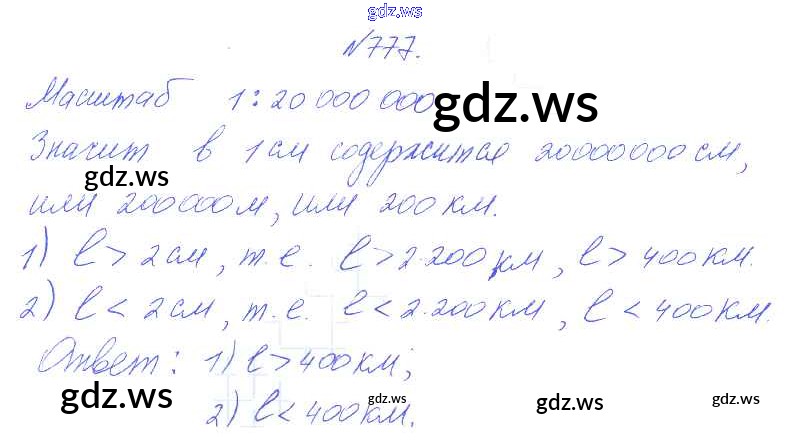 gdz.ws
№777.
Масштаб 1:20 000 000
gdz.ws
Значит в 1 см содержится 20000000 см,
gdz.ws
или 200000 м, или 200 км.
1) l > 2 см, т.е. l > 2·200 км, l > 400 км.
2) l < 2 см, т.е. l < 2·200 км, l < 400 км.
Ответ: 1) l > 400 км;
2) l < 400 км.
gdz.ws gdz.ws gdz.ws gdz.ws